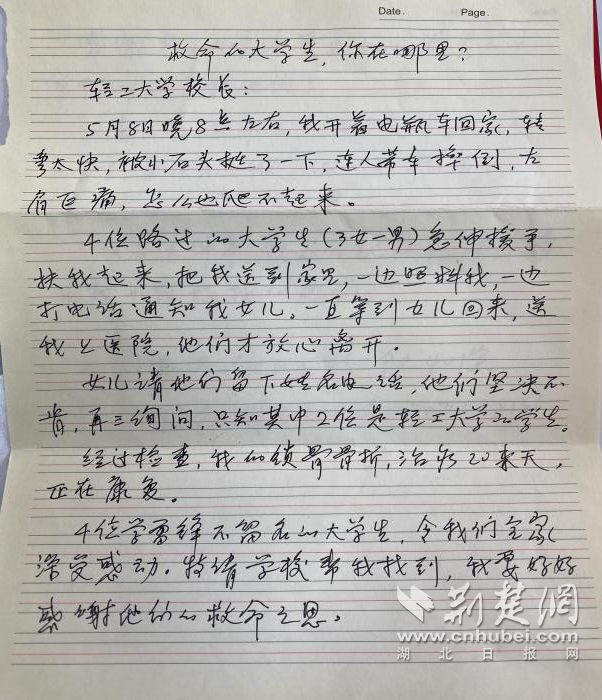 Date.
Page.
救命的大学生,你在哪里?
轻工大学校长:
5月8日晚8点左右,我开着电瓶车回家,转
弯太快,被小石头挺了一下,连人带车摔倒,左
肩巨痛,怎么也爬不起来。
4位路过的大学生(3女一男)急伸援手,
扶我起来,把我送到家里,一边照料我,一边
打电话通知我女儿。一直等到女儿回来,送
我上医院,他们才放心离开。
女儿请他们留下姓名电话,他们坚决不
肯,再三询问,只知其中2位是轻工大学的学生。
经过检查,我的锁骨骨折,治疗20来天,
正在康复。
4位学雷锋不留名的大学生,令我们全家
深受感动。特请学校帮我找到,我要好好
感谢他们的救命之恩。
荆楚网
www.cnhubei.com
湖北日报网